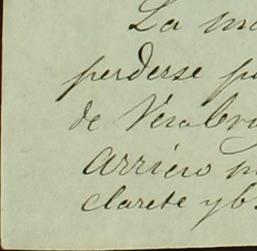 La
perderse
de Vera Cruz
Arriero
clarete y b